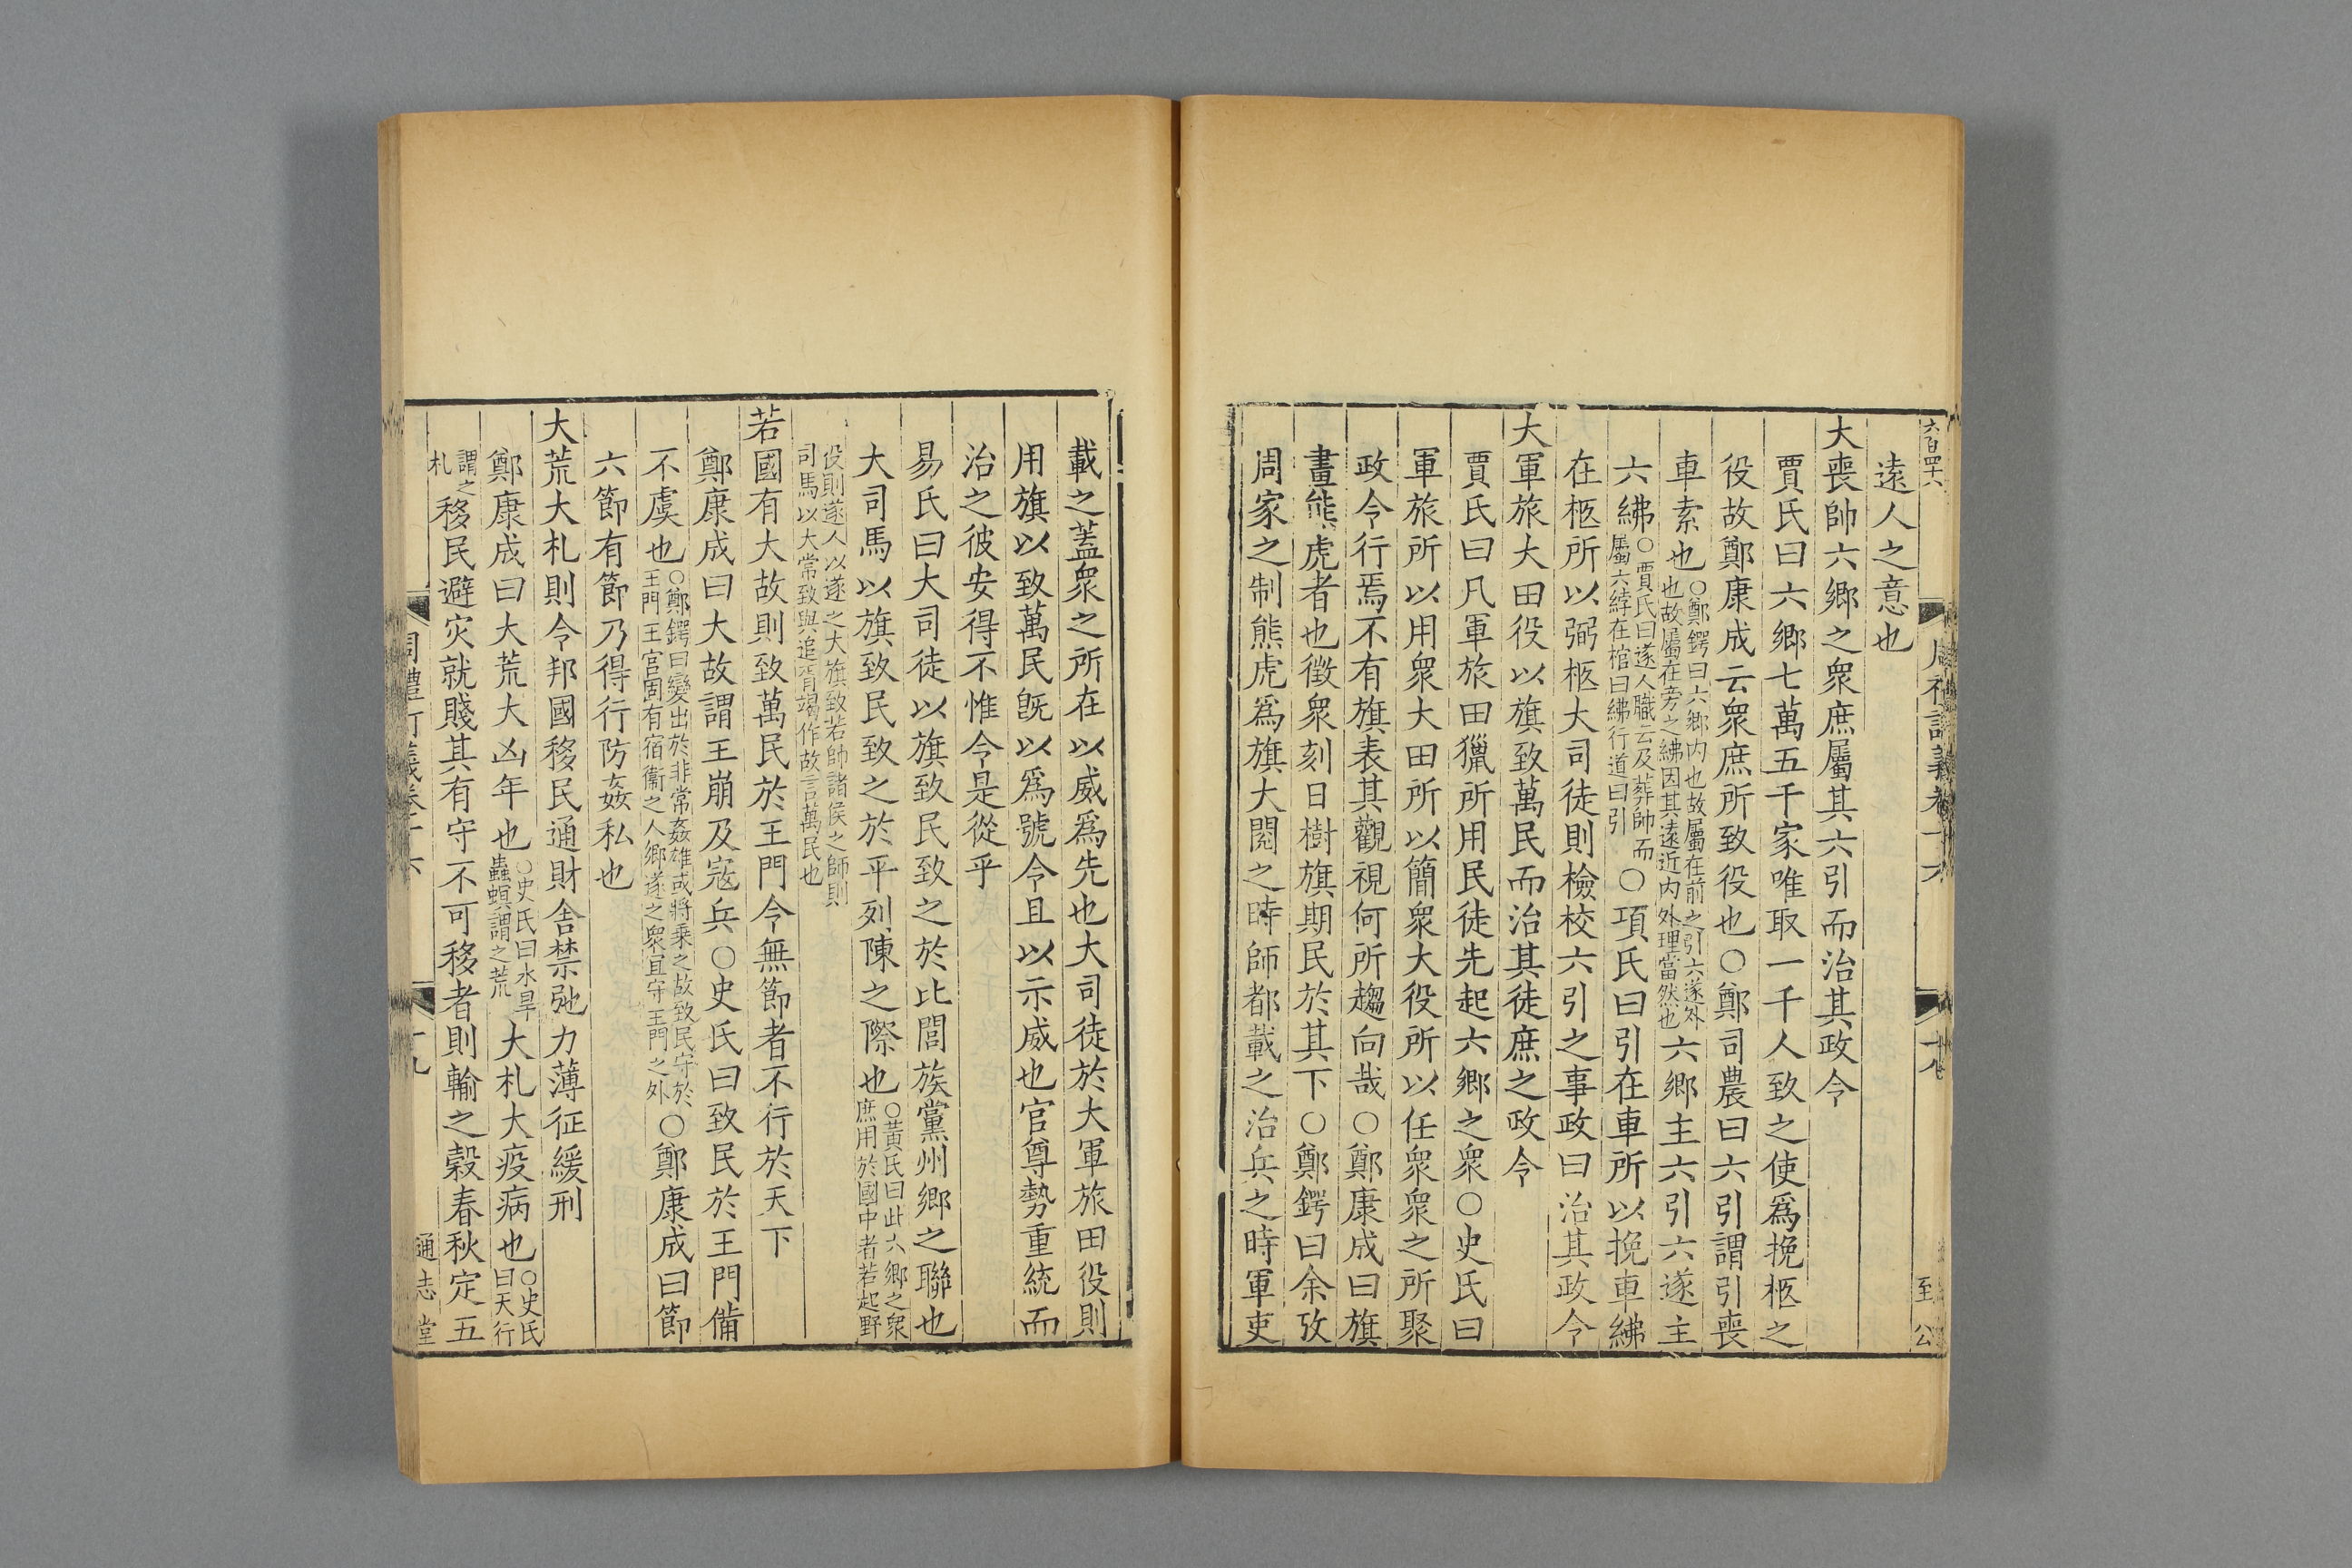 六百四十六
遠人之意也
大喪帥六鄉之衆庶屬其六引而治其政令
賈氏曰六鄉七萬五千家唯取一千人致之使爲挽柩之
役故鄭康成云衆庶所致役也○鄭司農曰六引謂引喪
車索也○鄭鍔曰六鄉內也故屬在前之引六遂外也故屬在旁之紼因其遠近內外理當然也六鄉主六引六遂主
六紼○賈氏曰遂人職云及葬帥而屬六綍在棺曰紼行道曰引○項氏曰引在車所以挽車紼
在柩所以弼柩大司徒則檢校六引之事政曰治其政令
大軍旅大田役以旗致萬民而治其徒庶之政令
賈氏曰凡軍旅田獵所用民徒先起六鄉之衆○史氏曰
軍旅所以用衆大田所以簡衆大役所以任衆衆之所聚
政令行焉不有旗表其觀視何所趨向哉○鄭康成曰旗
畫熊虎者也徵衆刻日樹旗期民於其下○鄭鍔曰余攷
周家之制熊虎爲旗大閱之時師都載之治兵之時軍吏
至公
載之蓋衆之所在以威爲先也大司徒於大軍旅田役則
用旗以致萬民旣以爲號令且以示威也官尊勢重統而
治之彼安得不惟令是從乎
易氏曰大司徒以旗致民致之於比閭族黨州鄉之聯也
大司馬以旗致民致之於平列陳之際也○黃氏曰此六鄉之衆庶用於國中者若起野
役則遂人以遂之大旗致若帥諸侯之師則司馬以大常致與追胥竭作故言萬民也
若國有大故則致萬民於王門令無節者不行於天下
鄭康成曰大故謂王崩及寇兵○史氏曰致民於王門備
不虞也○鄭鍔曰變出於非常姦雄或將乗之故致民守於王門王宮固有宿衞之人鄉遂之衆宜守王門之外○鄭康成曰節
六節有節乃得行防姦私也
大荒大札則令邦國移民通財舍禁弛力薄征緩刑
鄭康成曰大荒大凶年也○史氏曰水旱蟲螟謂之荒大札大疫病也○史氏曰天行
謂之札移民避灾就賤其有守不可移者則輸之穀春秋定五
周禮訂義卷十六
十九
通志堂